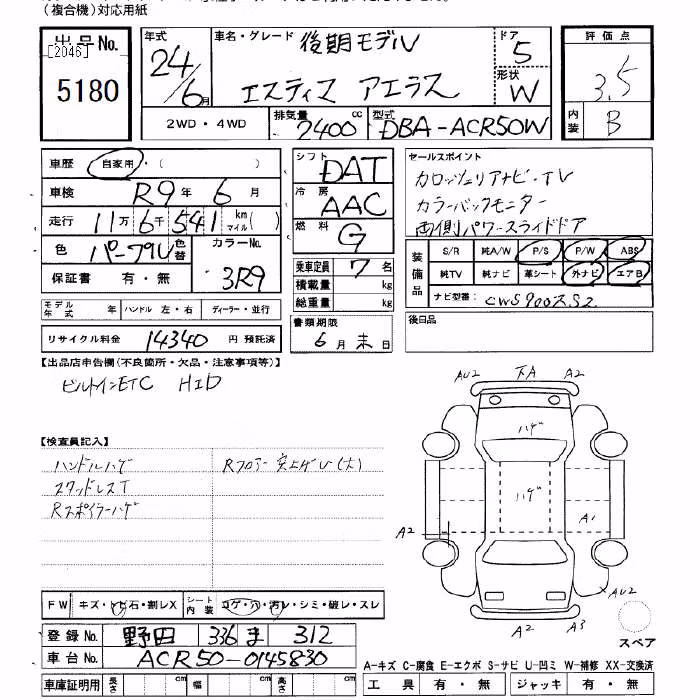 (複合機)対応用紙
出品No.
[2046]
5180
年式
24/6月
車名・グレード
後期モデル
エスティマ アエラス
ドア
5
形状
W
2WD・4WD
排気量
2400
cc
型式
DBA-ACR50W
評価点
3.5
内装
B
車歴 自家用・( )
車検 R9年 6月
走行 11万6千541 km マイル( )
色 パープル 色替
カラーNo.
3R9
保証書 有・無
モデル年式 年 ハンドル 左・右 ディーラー・並行
リサイクル料金 14340 円 預託済
シフト DAT
冷房 AAC
燃料 G
乗車定員 7 名
積載量 kg
総重量 kg
書類期限
6月末日
セールスポイント
カロッツェリアナビ・TV
カラーバックモニター
両側パワースライドドア
装備品
S/R 純A/W P/S P/W ABS
純TV 純ナビ 革シート 外ナビ エアB
ナビ型番:
後日品
【出品店申告欄(不良箇所・欠品・注意事項等)】
ビルトインETC HID
【検査員記入】
ハンドルハゲ
スタッドレスT
Rスポイラーハゲ
Rフロアー突上ゲU(大)
AU2 下A A2
ハゲ
ハゲ
A1
A2
×AU2
A2 A3
スペア
FW キズ・トビ石・割レX
シート内装 コゲ・穴・汚レ・シミ・破レ・スレ
登録No. 野田 336 ま 312
車台No. ACR50-0145830
車庫証明用 長さ cm 幅 cm 高さ cm
A-キズ C-腐食 E-エクボ S-サビ U-凹ミ W-補修 XX-交換済
工具 有・無 ジャッキ 有・無